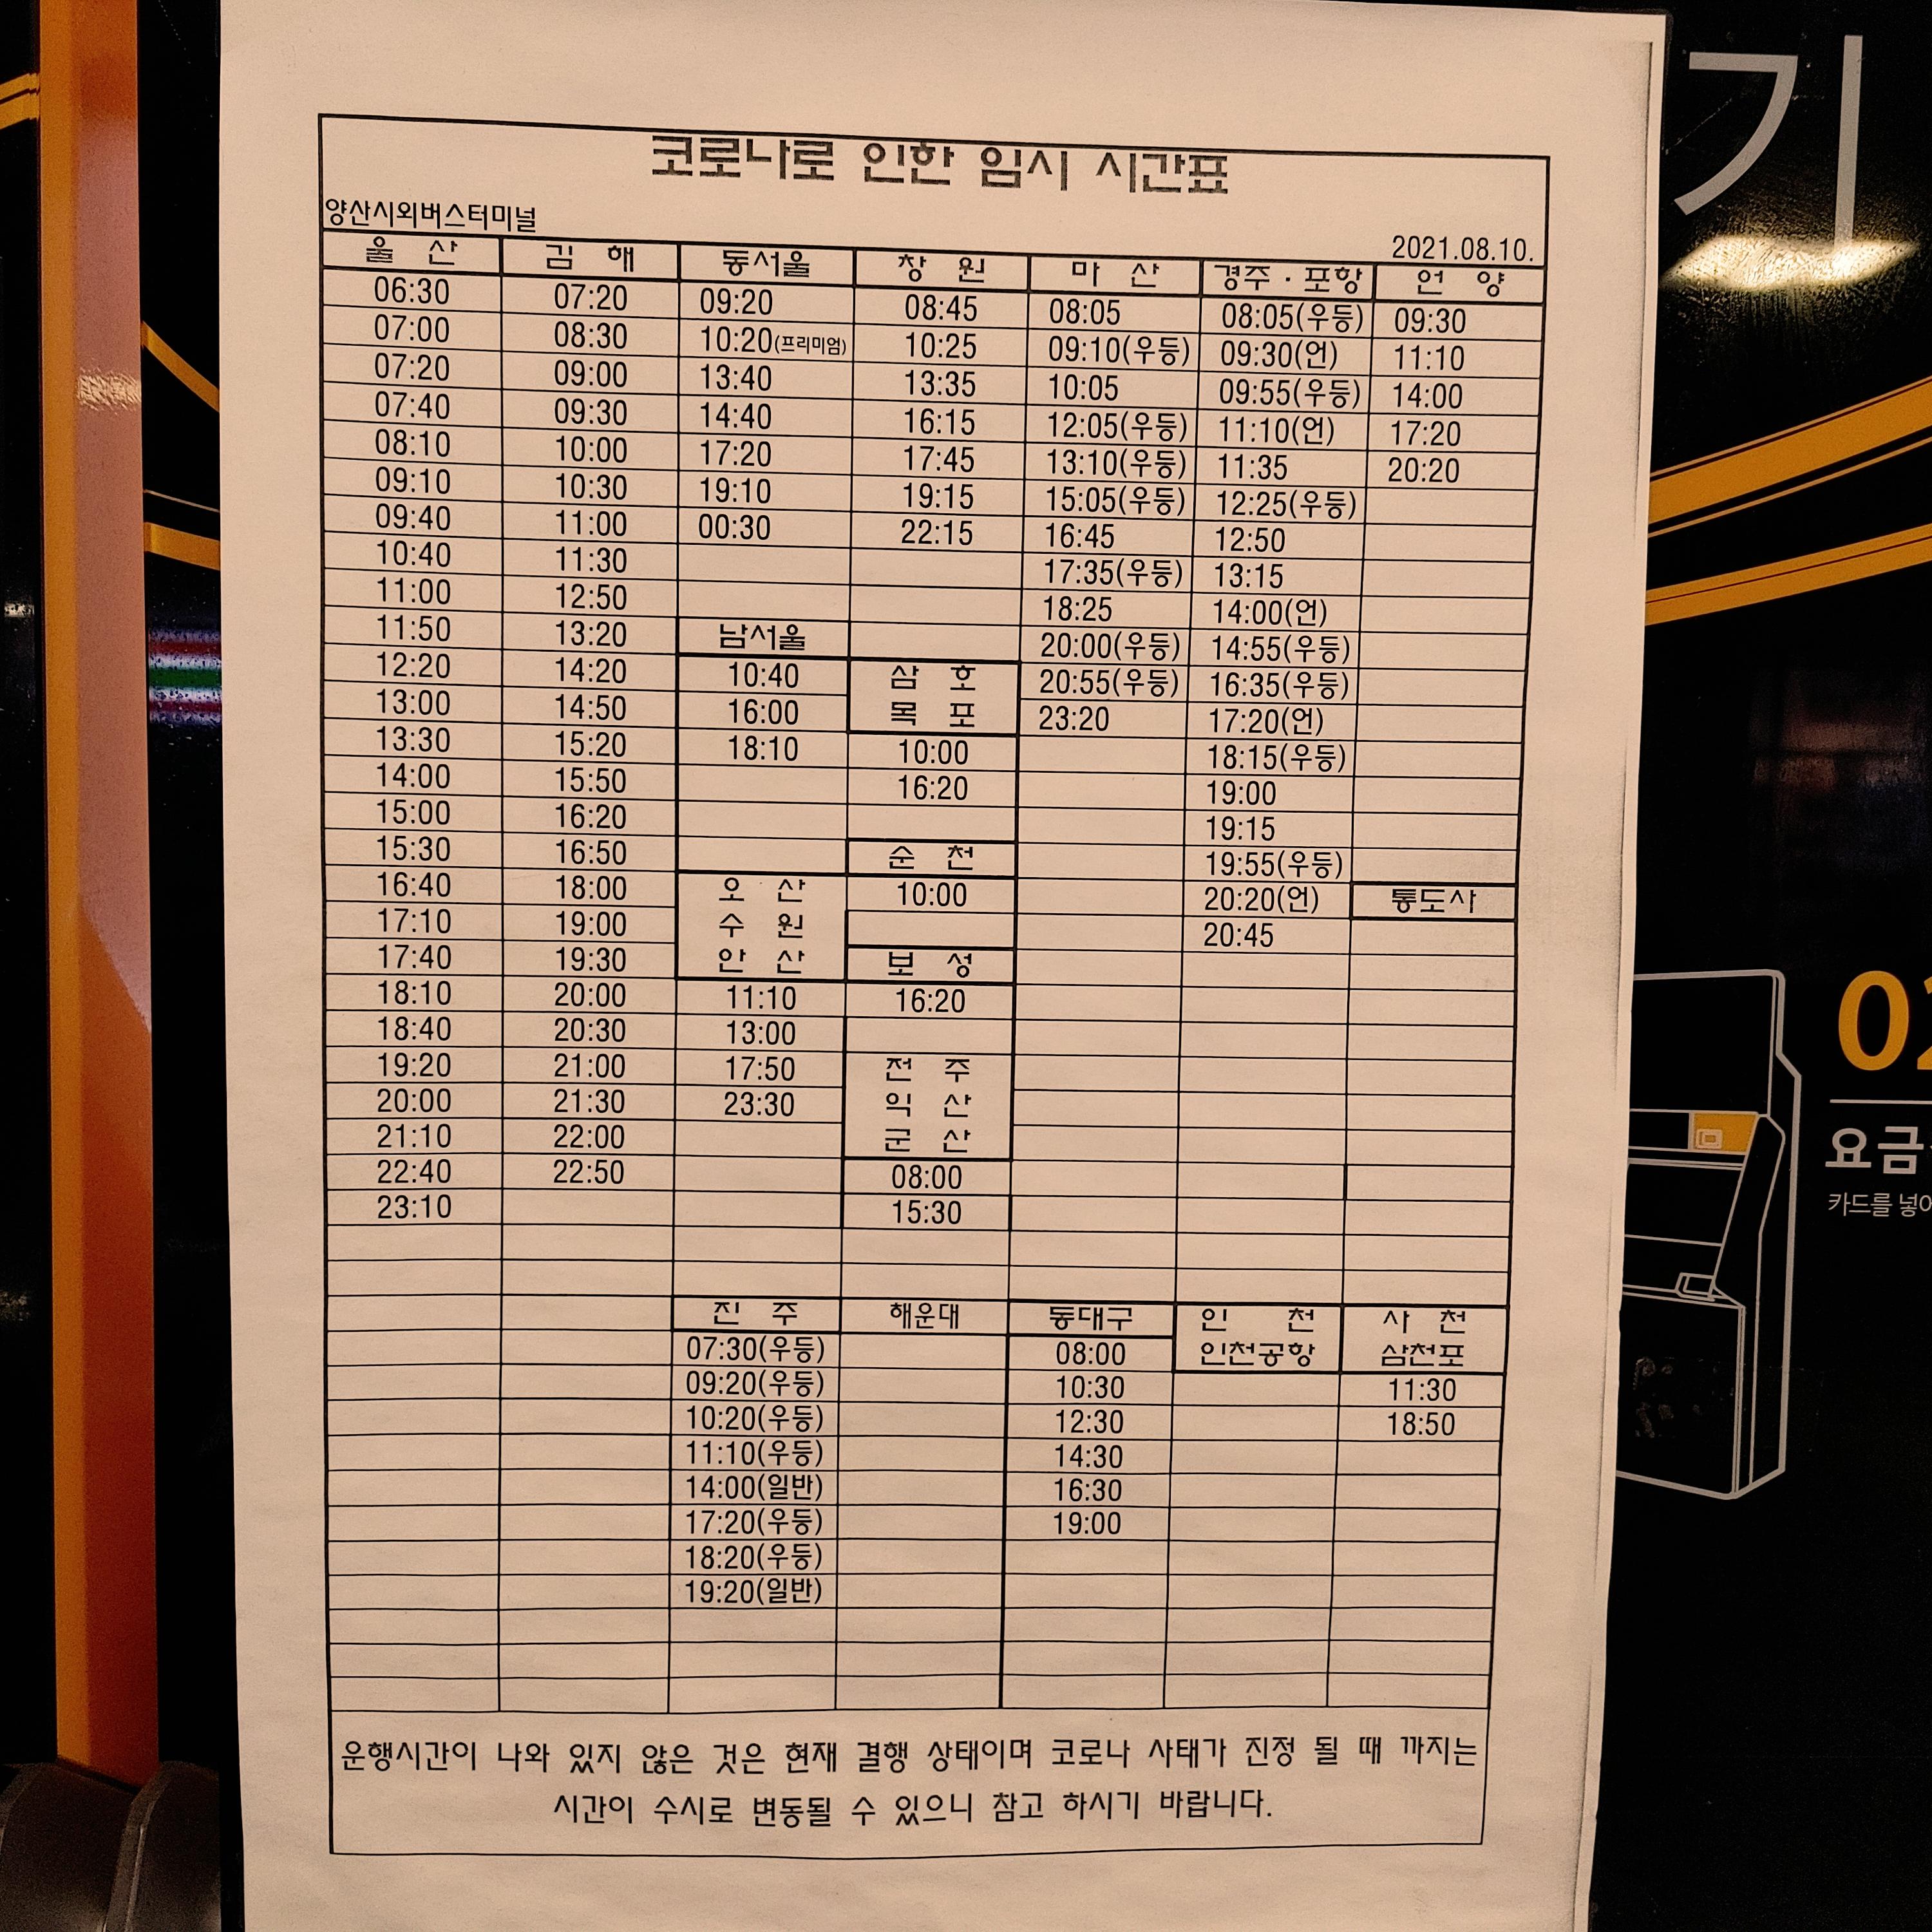 코로나로 인한 임시 시간표
양산시외버스터미널
2021.08.10.
울 산 김 해 동서울 창 원 마 산 경주 · 포항 언 양
06:30 07:20 09:20 08:45 08:05 08:05(우등) 09:30
07:00 08:30 10:20(프리미엄) 10:25 09:10(우등) 09:30(언) 11:10
07:20 09:00 13:40 13:35 10:05 09:55(우등) 14:00
07:40 09:30 14:40 16:15 12:05(우등) 11:10(언) 17:20
08:10 10:00 17:20 17:45 13:10(우등) 11:35 20:20
09:10 10:30 19:10 19:15 15:05(우등) 12:25(우등)
09:40 11:00 00:30 22:15 16:45 12:50
10:40 11:30 17:35(우등) 13:15
11:00 12:50 18:25 14:00(언)
11:50 13:20 남서울 20:00(우등) 14:55(우등)
12:20 14:20 10:40 삼 호 20:55(우등) 16:35(우등)
13:00 14:50 16:00 목 포 23:20 17:20(언)
13:30 15:20 18:10 10:00 18:15(우등)
14:00 15:50 16:20 19:00
15:00 16:20 19:15
15:30 16:50 순 천 19:55(우등)
16:40 18:00 오 산 10:00 20:20(언) 통도사
17:10 19:00 수 원 20:45
17:40 19:30 안 산 보 성
18:10 20:00 11:10 16:20
18:40 20:30 13:00
19:20 21:00 17:50 전 주
20:00 21:30 23:30 익 산
21:10 22:00 군 산
22:40 22:50 08:00
23:10 15:30
진 주 해운대 동대구 인 천 사 천
07:30(우등) 08:00 인천공항 삼천포
09:20(우등) 10:30 11:30
10:20(우등) 12:30 18:50
11:10(우등) 14:30
14:00(일반) 16:30
17:20(우등) 19:00
18:20(우등)
19:20(일반)
운행시간이 나와 있지 않은 것은 현재 결행 상태이며 코로나 사태가 진정 될 때 까지는
시간이 수시로 변동될 수 있으니 참고 하시기 바랍니다.
기
02
요금
카드를 넣어